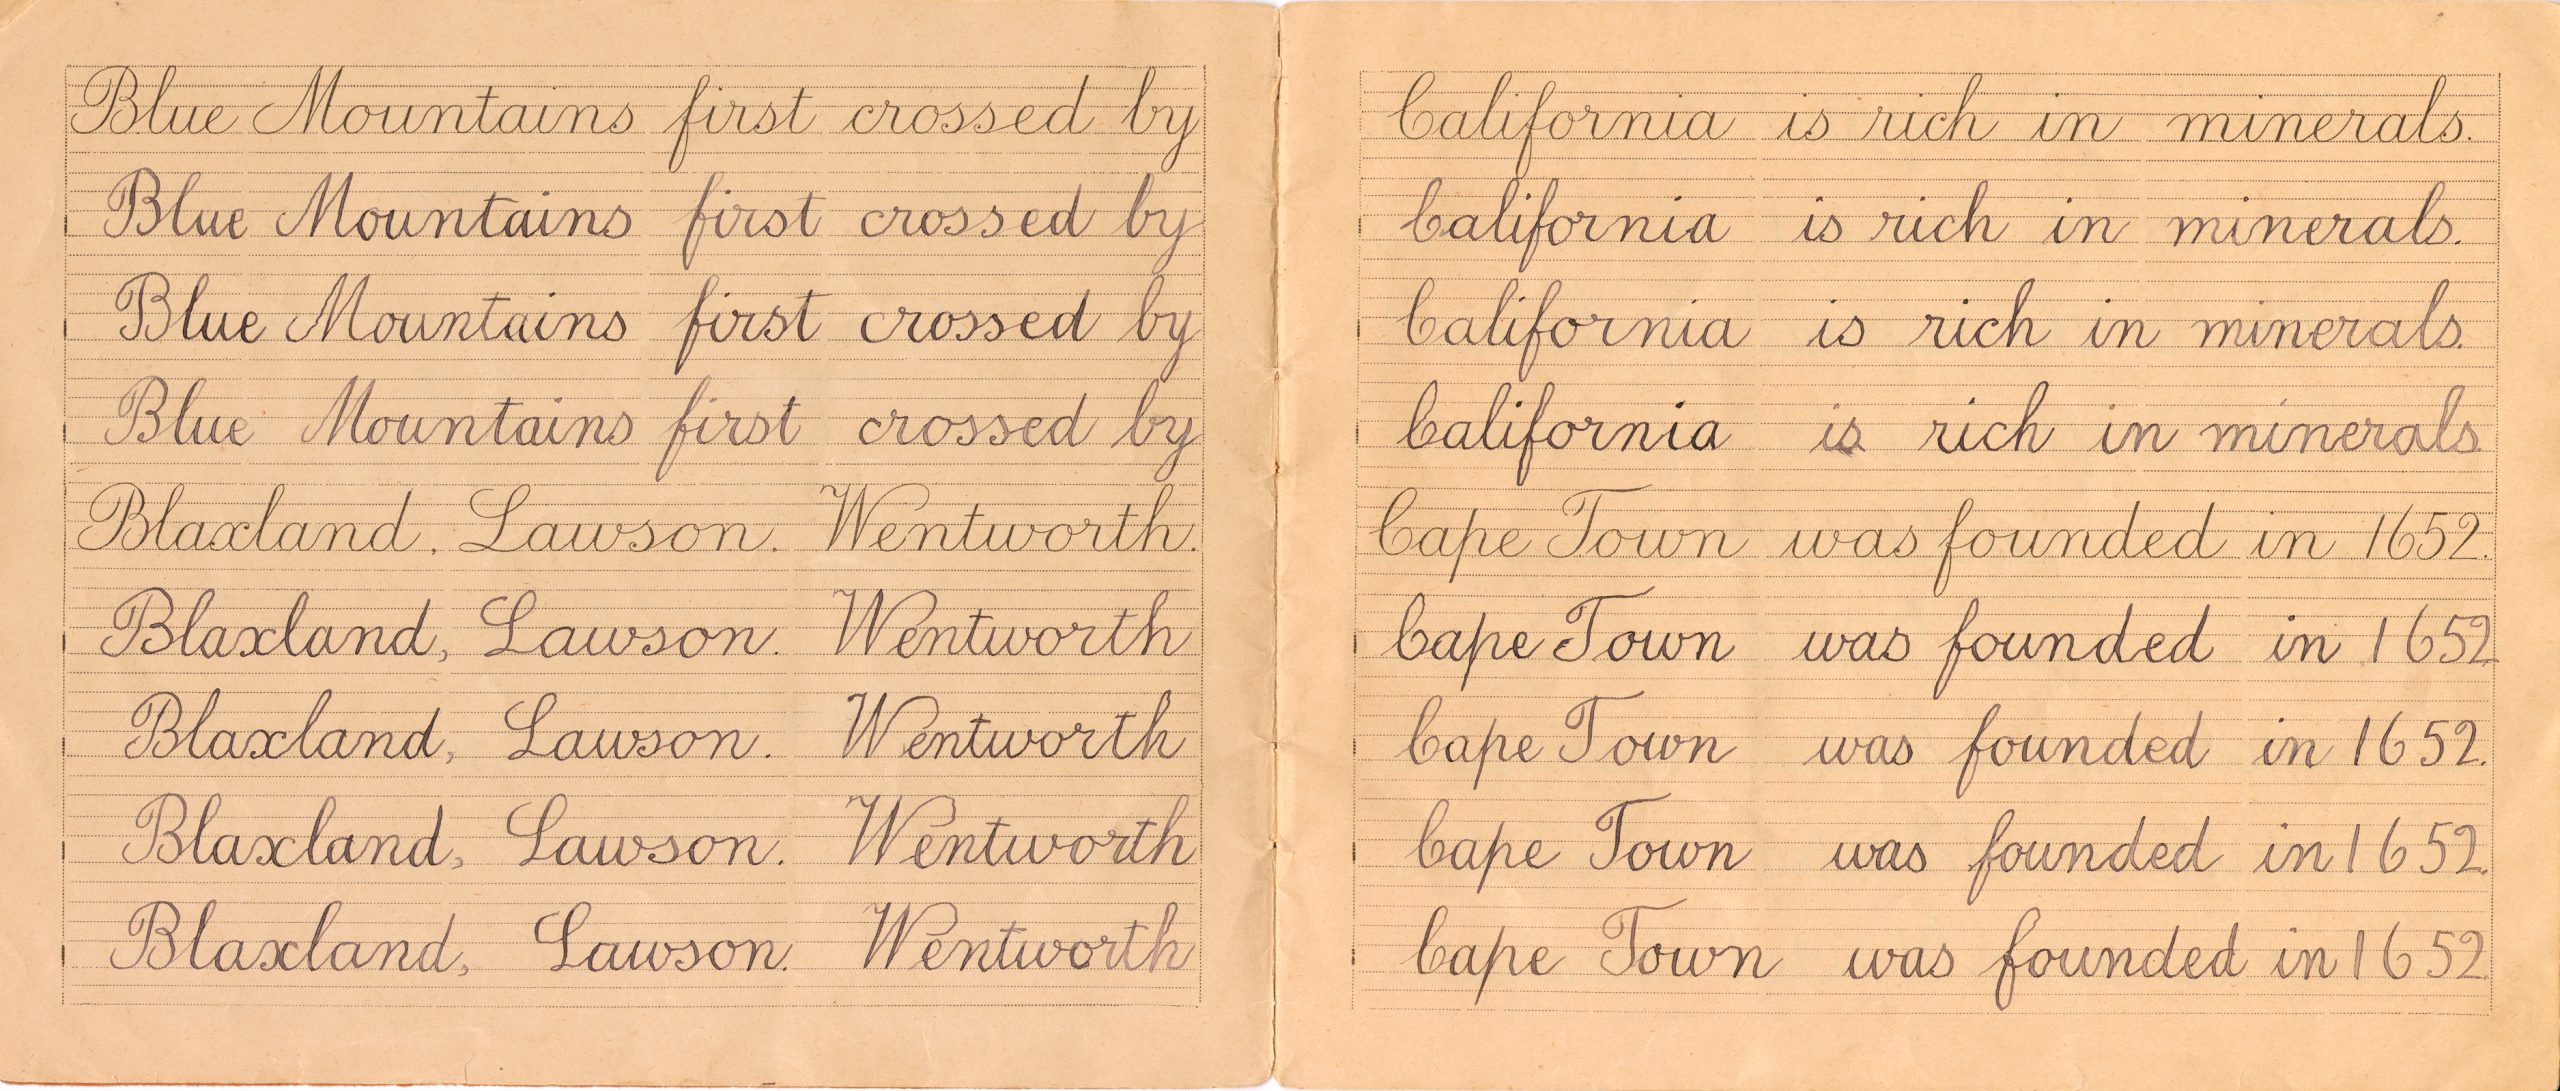 Blue Mountains first crossed by
Blue Mountains first crossed by
Blue Mountains first crossed by
Blue Mountains first crossed by
Blaxland, Lawson. Wentworth.
Blaxland, Lawson. Wentworth
Blaxland, Lawson. Wentworth
Blaxland, Lawson. Wentworth
Blaxland, Lawson. Wentworth
California is rich in minerals.
California is rich in minerals.
California is rich in minerals.
California is rich in minerals.
Cape Town was founded in 1652.
Cape Town was founded in 1652
Cape Town was founded in 1652.
Cape Town was founded in 1652.
Cape Town was founded in 1652.